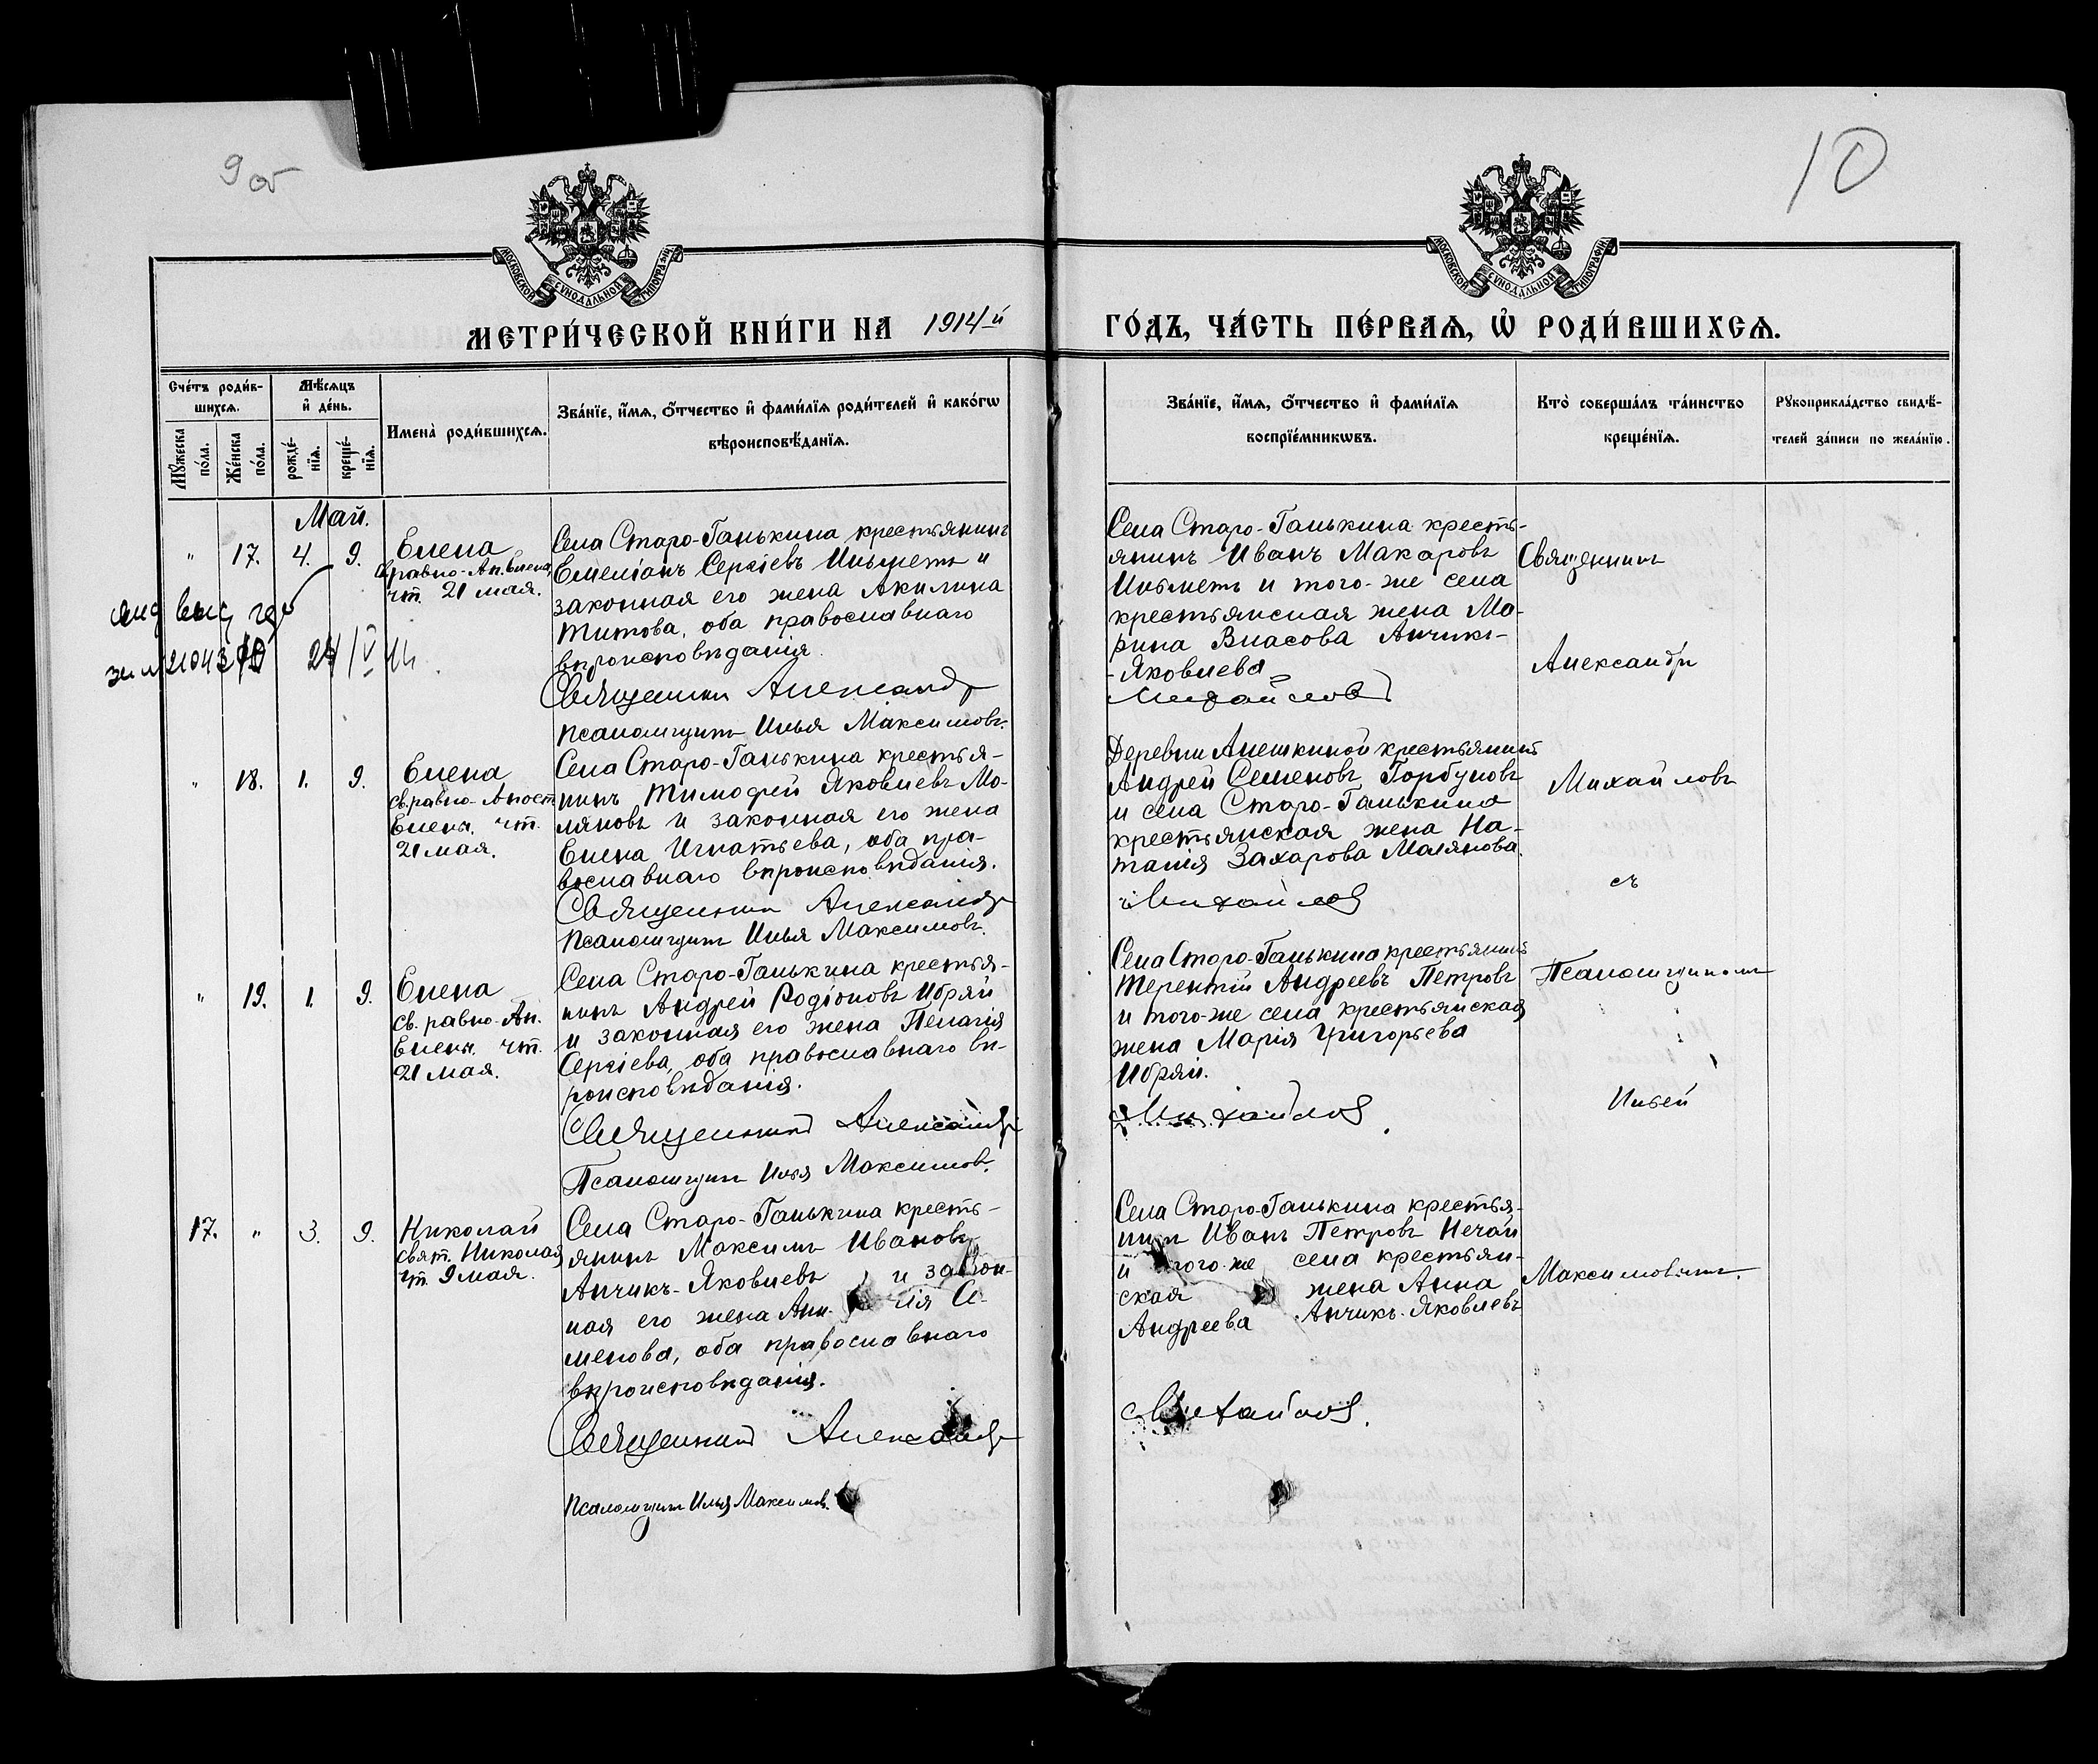 9 об
10
МОСКОВСКОЙ СѴНОДАЛЬНОЙ ТИПОГРАФІИ
МОСКОВСКОЙ СѴНОДАЛЬНОЙ ТИПОГРАФІИ
МЕТРИ́ЧЕСКОЙ КНИ́ГИ НА 1914-й
ГО́ДЪ, ЧА́СТЬ ПЕ́РВАѦ, Ѡ҆ РОДИ́ВШИХСѦ.
Сче́тъ роди́в-
шихсѧ.
Мѣ́сѧцъ
и҆ де́нь.
Мꙋ́жеска
по́ла.
Же́нска
по́ла.
рожде́-
нїѧ.
креще́-
нїѧ.
Имена̀ роди́вшихсѧ.
Зва́нїе, и҆́мѧ, ѻ҆́тчество и҆ фами́лїѧ роди́телей и҆ како́гѡ
вѣроисповѣ́данїѧ.
Зва́нїе, и҆́мѧ, ѻ҆́тчество и҆ фами́лїѧ
воспрїе́мникѡвъ.
Кто̀ соверша́лъ та́инство
креще́нїѧ.
Рꙋкоприкла́дство свидѣ́-
телей за́писи по жела́нїю.
Май.
" 17. 4. 9.
Елена
равно-Ап. Елена,
чт. 21 мая.
Села Старо-Ганькина крестьянинъ
Емеліанъ Сергіевъ Ильметь и
законная его жена Акилина
Титова, оба православнаго
вѣроисповѣданія.
Священникъ Александръ
Псаломщикъ Илья Максимовъ.
Села Старо-Ганькина кресть-
янинъ Иванъ Макаровъ
Ильметь и того-же села
крестьянская жена Ма-
рина Власова Анчикъ-
-Яковлева
Михайловъ
Священникъ
Александръ
" 18. 1. 9.
Елена
св. равно-Апост.
Елена. чт.
21 мая.
Села Старо-Ганькина крестья-
нинъ Тимофей Яковлевъ Мо-
ляновъ и законная его жена
Елена Игнатьева, оба пра-
вославнаго вѣроисповѣданія.
Священникъ Александръ
Псаломщикъ Илья Максимовъ.
Деревни Алешкиной крестьянинъ
Андрей Семеновъ Горбуновъ
и села Старо-Ганькина
крестьянская жена На-
талія Захарова Малянова.
Михайловъ
Михайловъ
съ
" 19. 1. 9.
Елена
св. равно-Ап.
Елена. чт.
21 мая.
Села Старо-Ганькина крестья-
нинъ Андрей Родіоновъ Ибряй
и законная его жена Пелагія
Сергіева, оба православнаго вѣ-
роисповѣданія.
Священникъ Александръ
Псаломщикъ Илья Максимовъ.
Села Старо-Ганькина крестьянинъ
Терентій Андреевъ Петровъ
и того-же села крестьянская
жена Марія Григорьева
Ибряй.
Михайловъ
Псаломщикомъ
Ильей
17. " 3. 9.
Николай
свят. Николая,
чт. 9 мая.
Села Старо-Ганькина кресть-
янинъ Максимъ Ивановъ
Анчикъ-Яковлевъ и закон-
ная его жена
менова, оба православнаго
вѣроисповѣданія.
Священникъ Александръ
Псаломщикъ Илья Максимовъ.
Села Старо-Ганькина крестья-
нинъ Иванъ Петровъ Нечай
и того-же села крестьян-
ская жена Анна
Андреева Анчикъ-Яковлевъ
Михайловъ.
Максимовымъ.